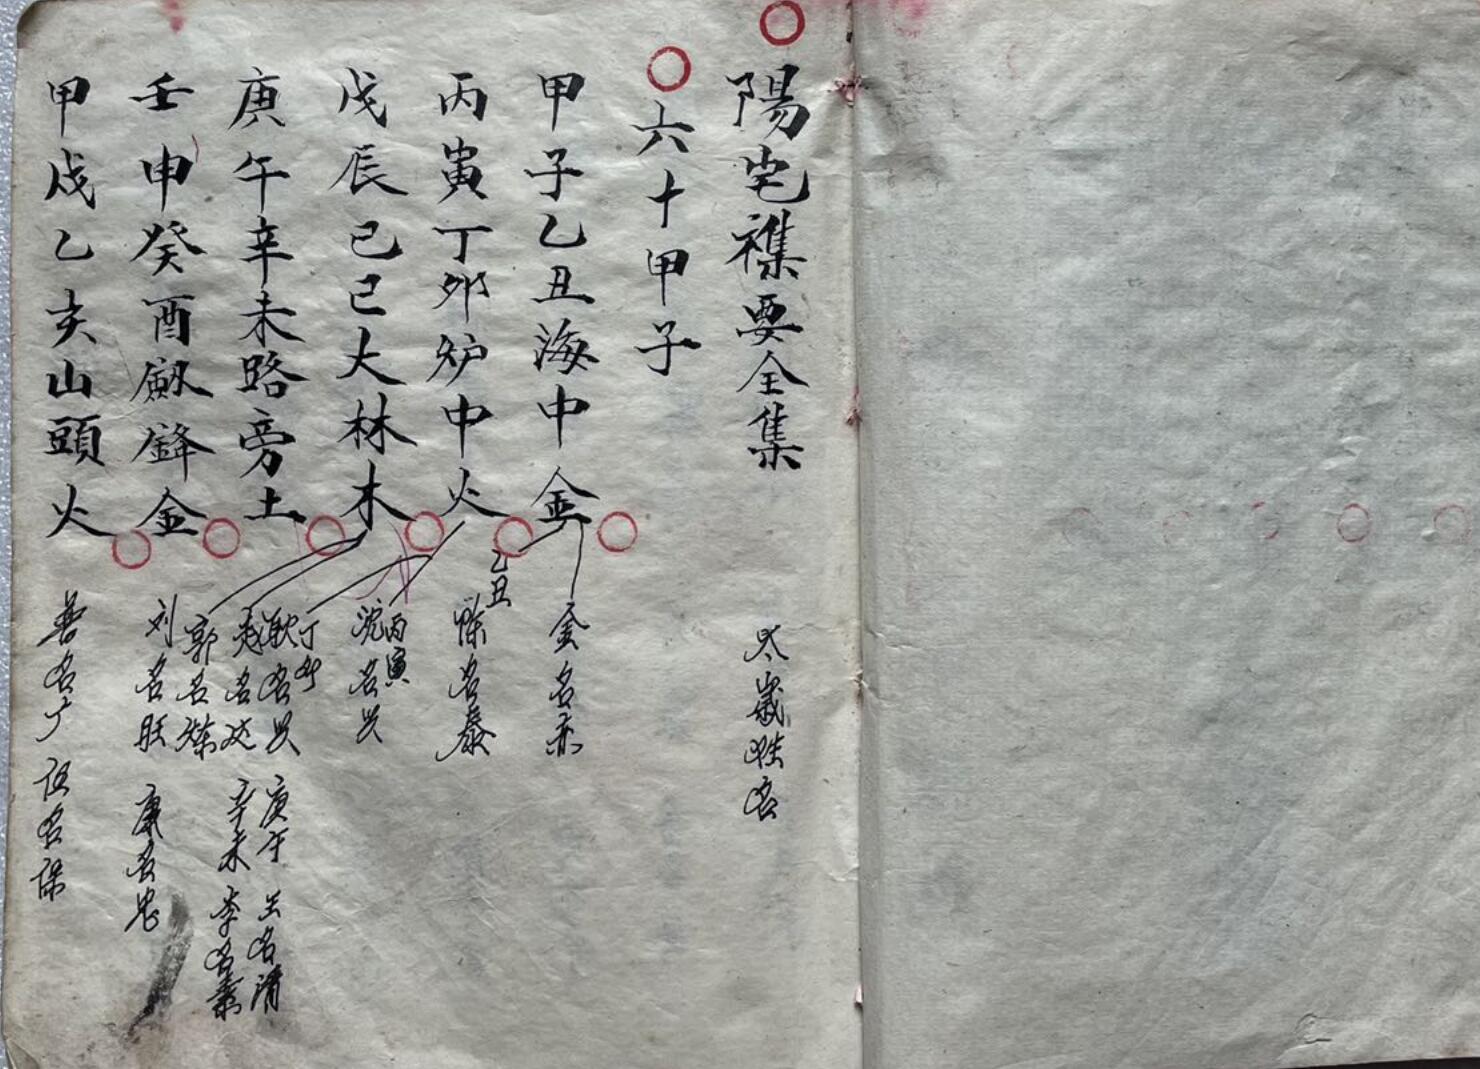 陽宅襍要全集
太歲姓名
六十甲子
甲子乙丑海中金
金名赤
乙丑
陳名泰
丙寅丁卯炉中火
丙寅
沈名兴
丁卯
耿名兴
戊辰己巳大林木
赵名达
郭名燦
庚午辛未路旁土
庚午 名清
辛未 李名素
壬申癸酉劔鋒金
刘名旺 康名忠
甲戌乙亥山頭火
名广 伍名保